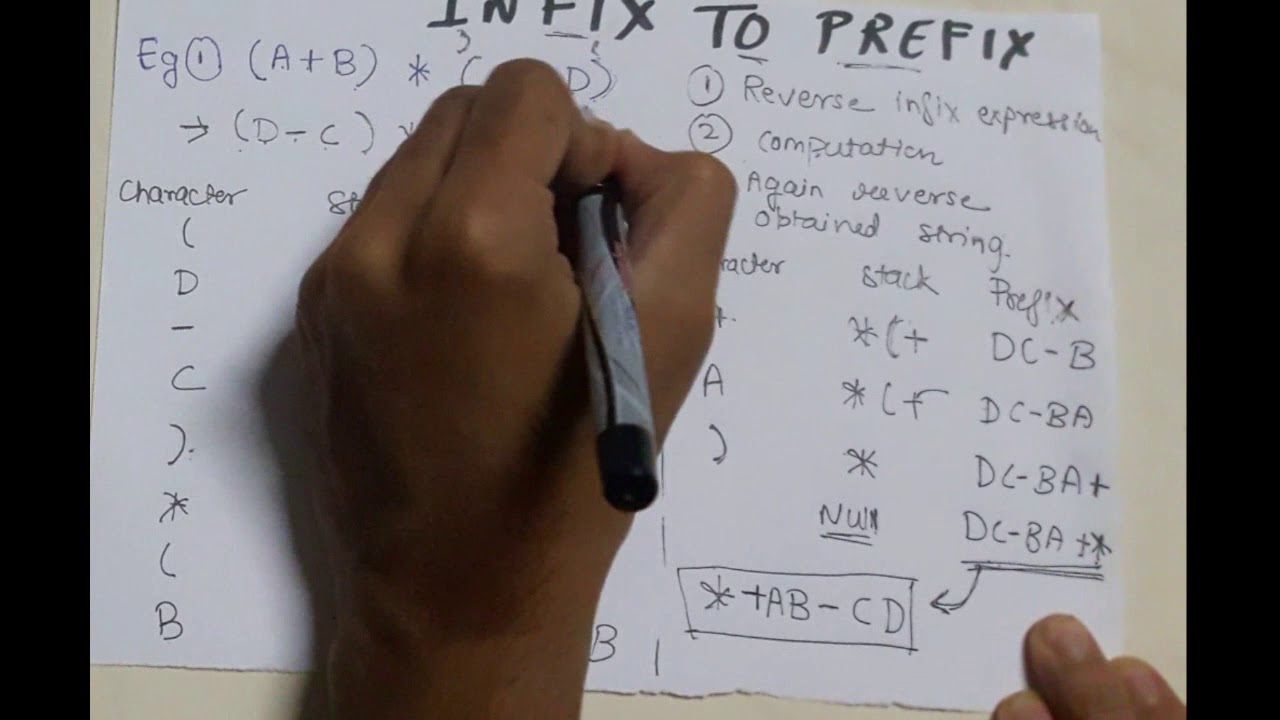 INFIX TO PREFIX
Eg ① (A+B) * ( D)
→ (D-C) *
① Reverse infix expression
② Computation
Again reverse
obtained string.
Character
(
D
-
C
).
*
(
B
B
stack Prefix
*(+ DC-B
A *(+ DC-BA
) * DC-BA+
Null DC-BA+*
*+AB-CD